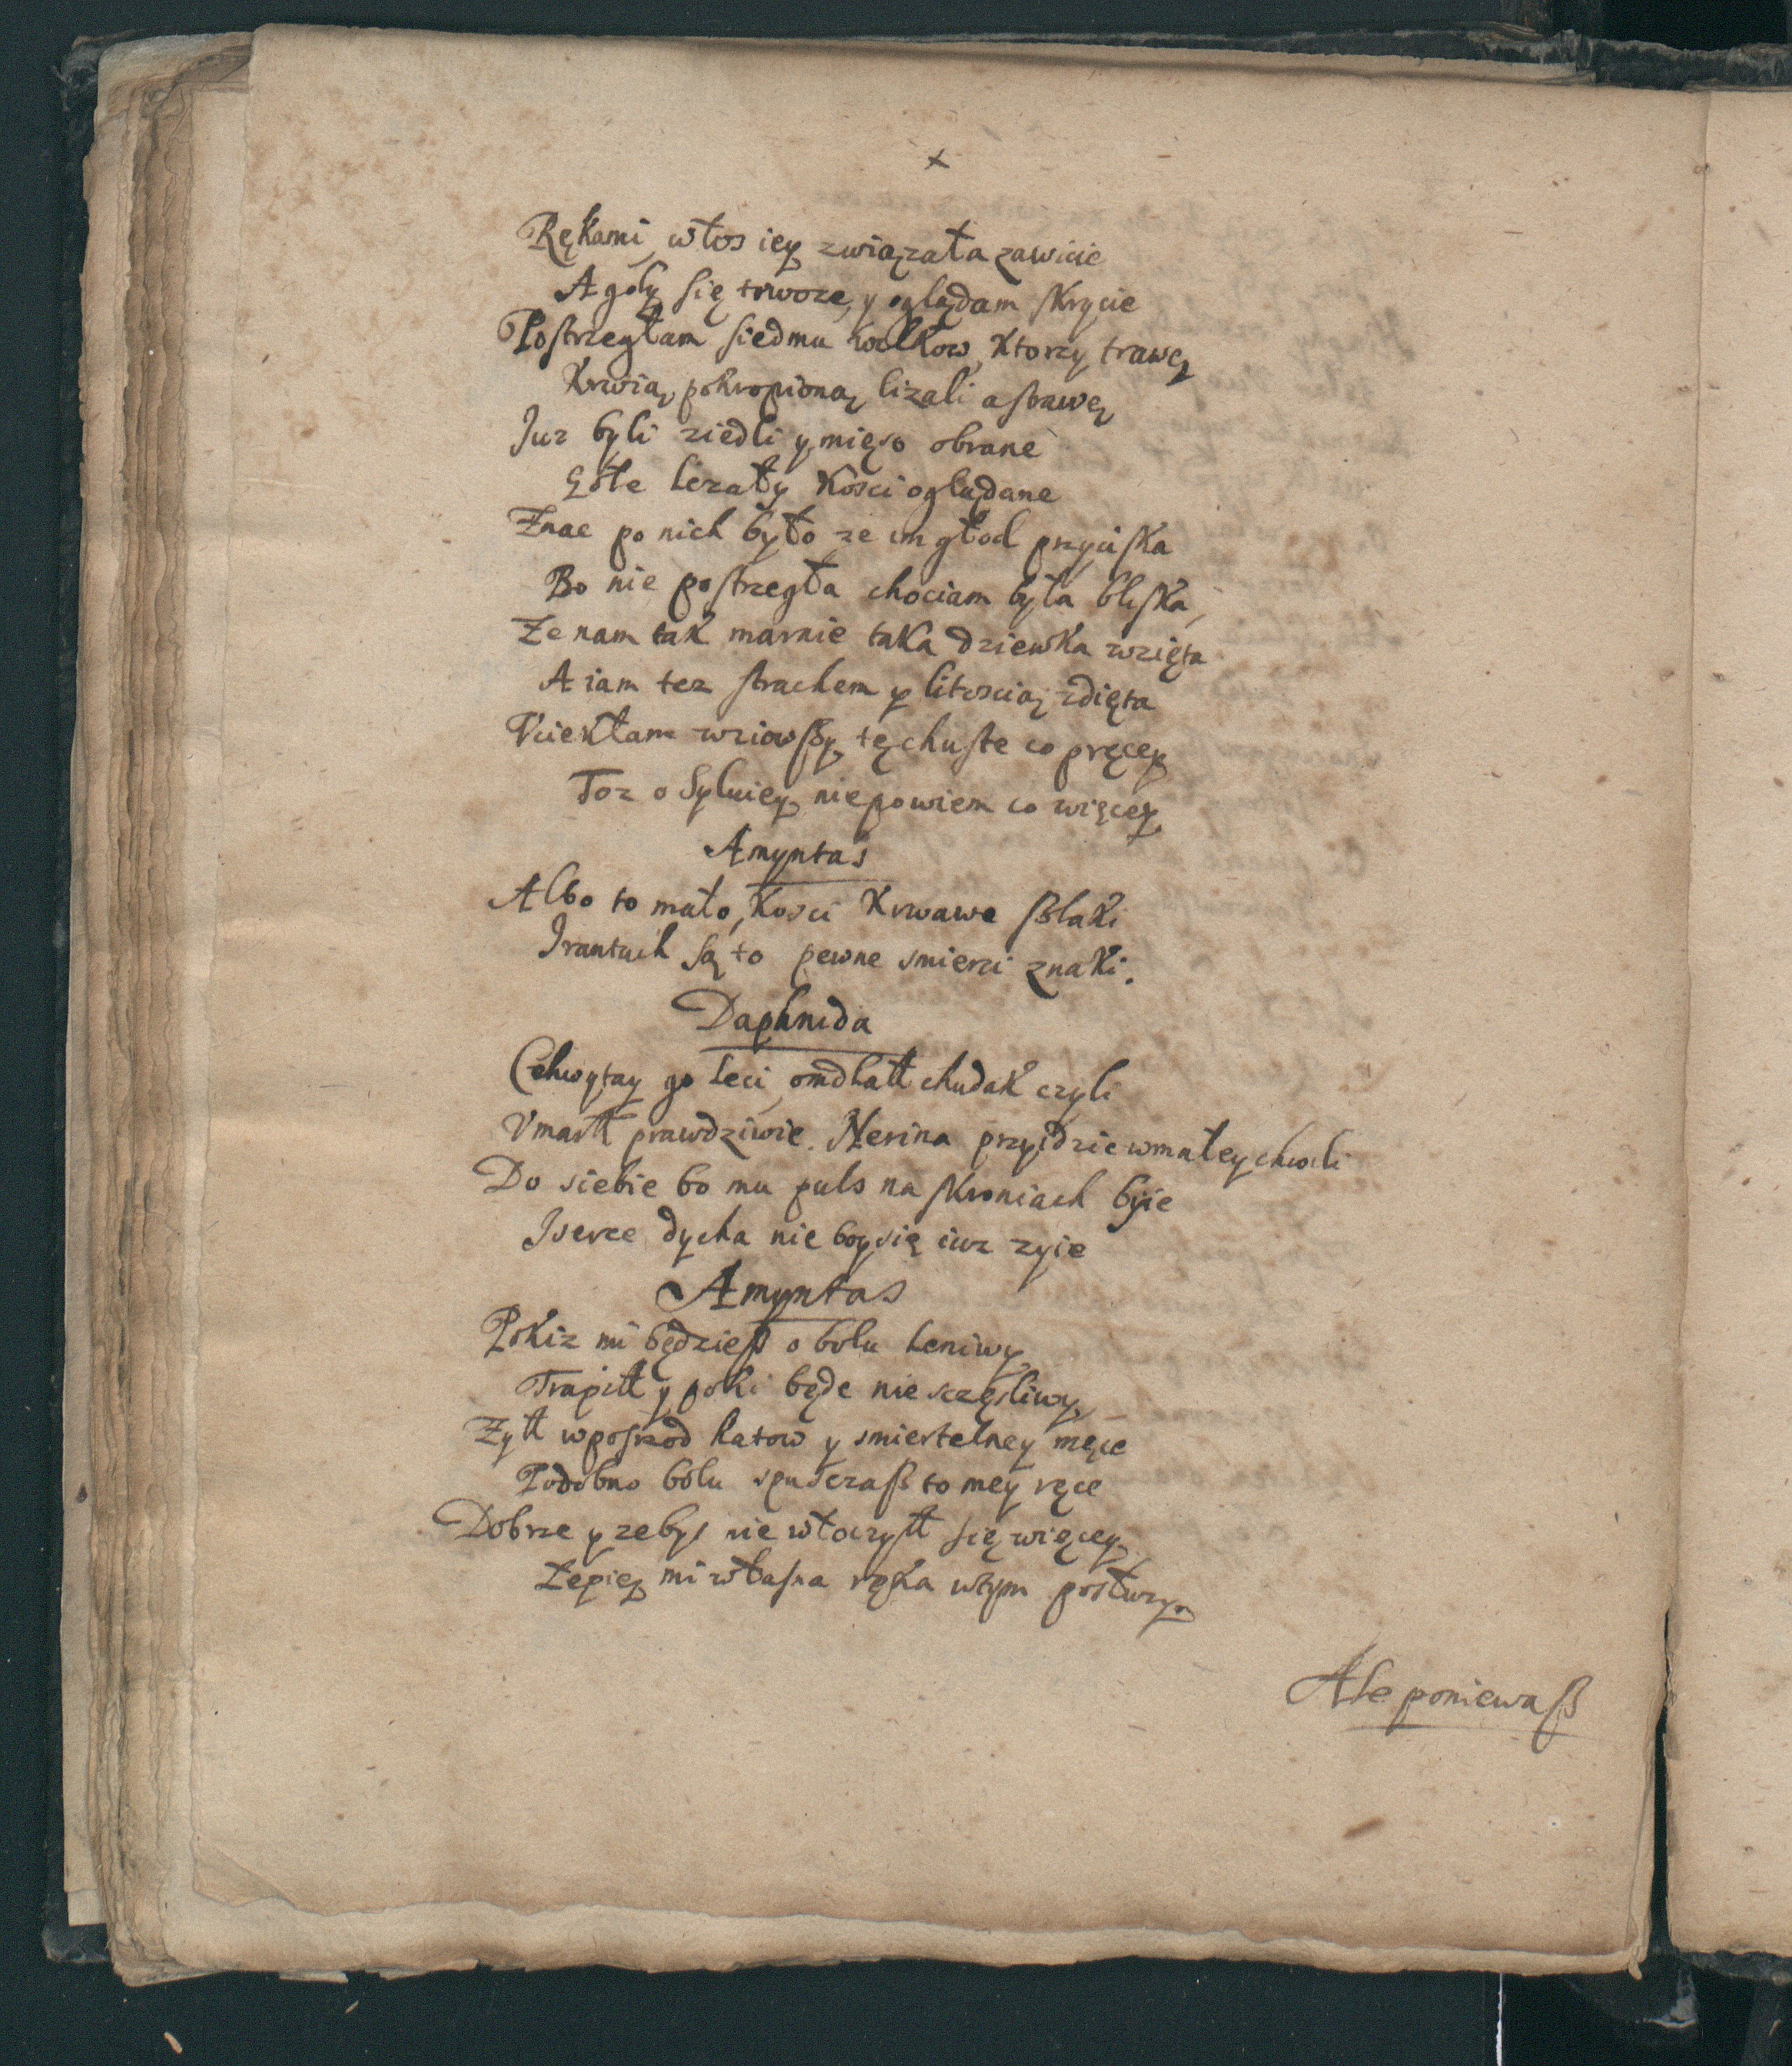 x
Rękami, włos iey związała zawicie
A gdy się trwoze, y oglądam skrycie
Postrzegłam siedmu wilkow, ktorzy trawę
Krwią pokropioną lizali a strawę
Juz byli ziedli y mięso obrane
Gołe lezały kosci oglądane
Znac po nich było ze im głod przyciska
Bo nie postrzegła chociam była bliska,
Ze nam tak marnie taka dziewka wzięta
A iam tez strachem y litoscią zdięta
Vciekłam wziowszy tę chuste co pręcey
Toz o Sylwiey niepowiem co więcey
Amyntas
Albo to mało, kosci krwawe szlaki
I rantuch są to pewne smierci znaki.
Daphnida
Chwytay go leci, omdlałł chudak czyli
Vmarł prawdziwie. Nerina przyidzie wmałey chwili
Do siebie bo mu puls na skroniach byie
I serce dycha nie boy się iuz zyie
Amyntas
Pokiz mi będziesz o bolu leniwy
Trapiłł y poki będe niesczęsliwy
Zyłł wposrzod katow y smiertelney męce
Podobno bolu spusczasz to mey ręce
Dobrze y zebys nie włoczyłł się więcey
Lepiey mi własna ręka wtym posłuzy
Ale poniewasz